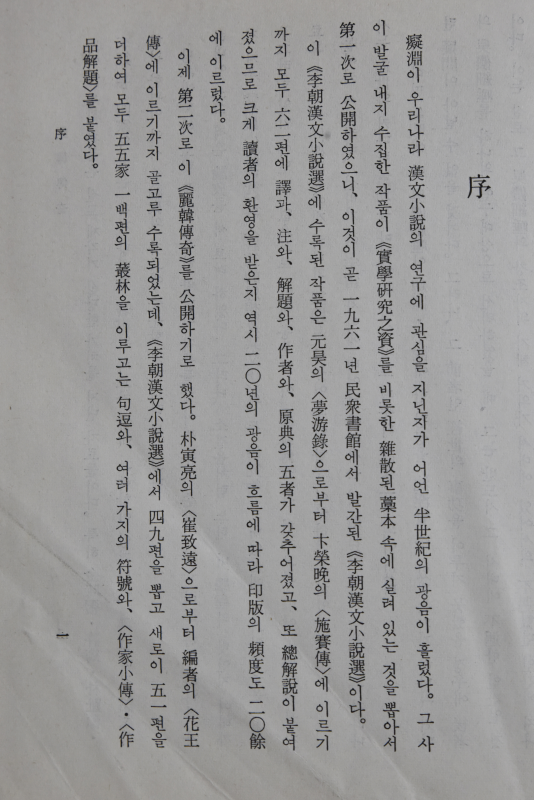 序
癡淵이 우리나라 漢文小說의 연구에 관심을 지닌지가 어언 半世紀의 광음이 흘렀다. 그 사
이 발굴 내지 수집한 작품이 《實學硏究之資》를 비롯한 雜散된 藁本 속에 실려 있는 것을 뽑아서
第一次로 公開하였으니, 이것이 곧 一九六一년 民衆書館에서 발간된 《李朝漢文小說選》이다.
이 《李朝漢文小說選》에 수록된 작품은 元昊의 〈夢游錄〉으로부터 卞榮晩의 〈施賽傳〉에 이르기
까지 모두 六二편에 譯과、注와、解題와、作者와、原典의 五者가 갖추어졌고、또 總解說이 붙여
졌으므로 크게 讀者의 환영을 받은지 역시 二〇년의 광음이 흐름에 따라 印版의 頻度도 二〇餘
에 이르렀다.
이제 第二次로 이 《麗韓傳奇》를 公開하기로 했다. 朴寅亮의 〈崔致遠〉으로부터 編者의 〈花王
傳〉에 이르기까지 골고루 수록되었는데、《李朝漢文小說選》에서 四九편을 뽑고 새로이 五一편을
더하여 모두 五五家 一백편의 叢林을 이루고는 句逗와、여러 가지의 符號와、〈作家小傳〉·〈作
品解題〉를 붙였다.
序
一